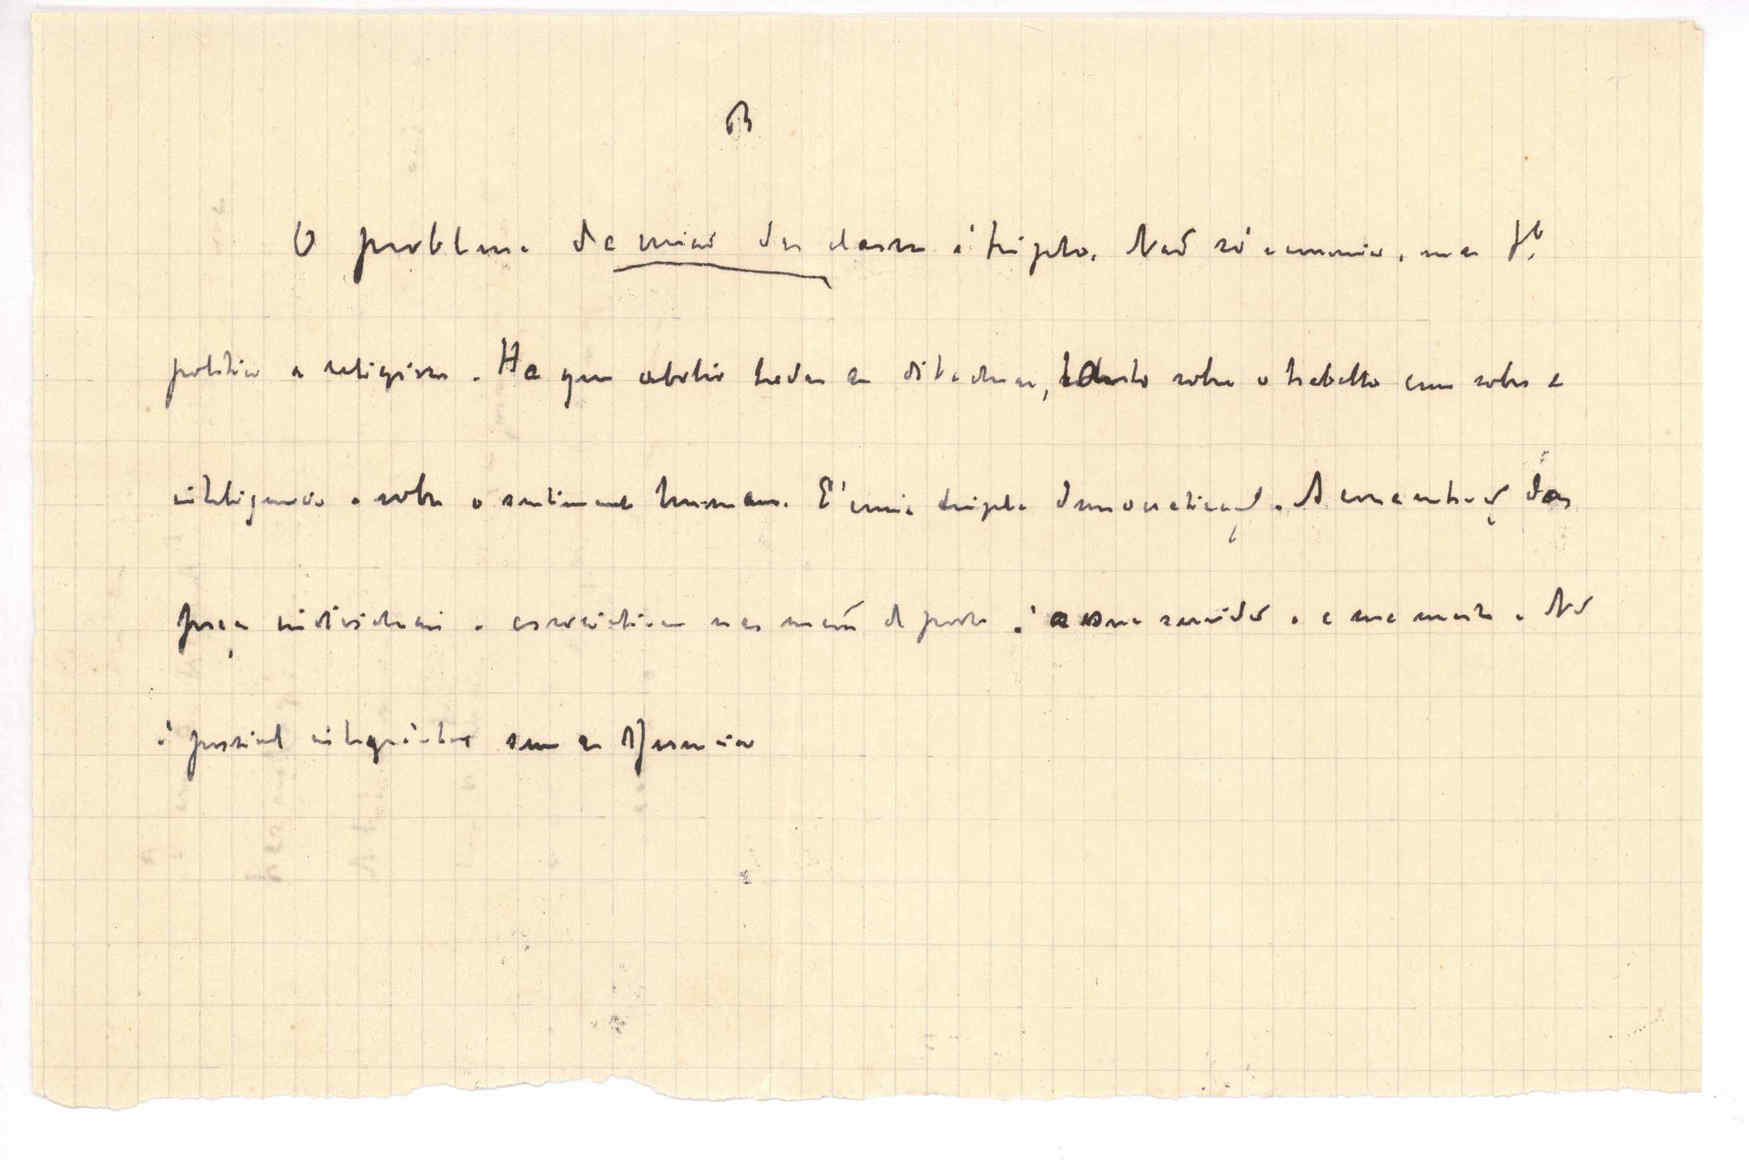 B
O problema da união das classes é triplo. Não só economico, mas tb.
politico e religioso. Ha que abolir todas as ditaduras, tanto sobre o trabalho como sobre a
inteligencia e sobre o sentimento humano. É uma tripla democratização. A concentração das
forças individuais e associativas nas mãos de poder é a sua servidão e a sua morte. Não
é possivel sem as